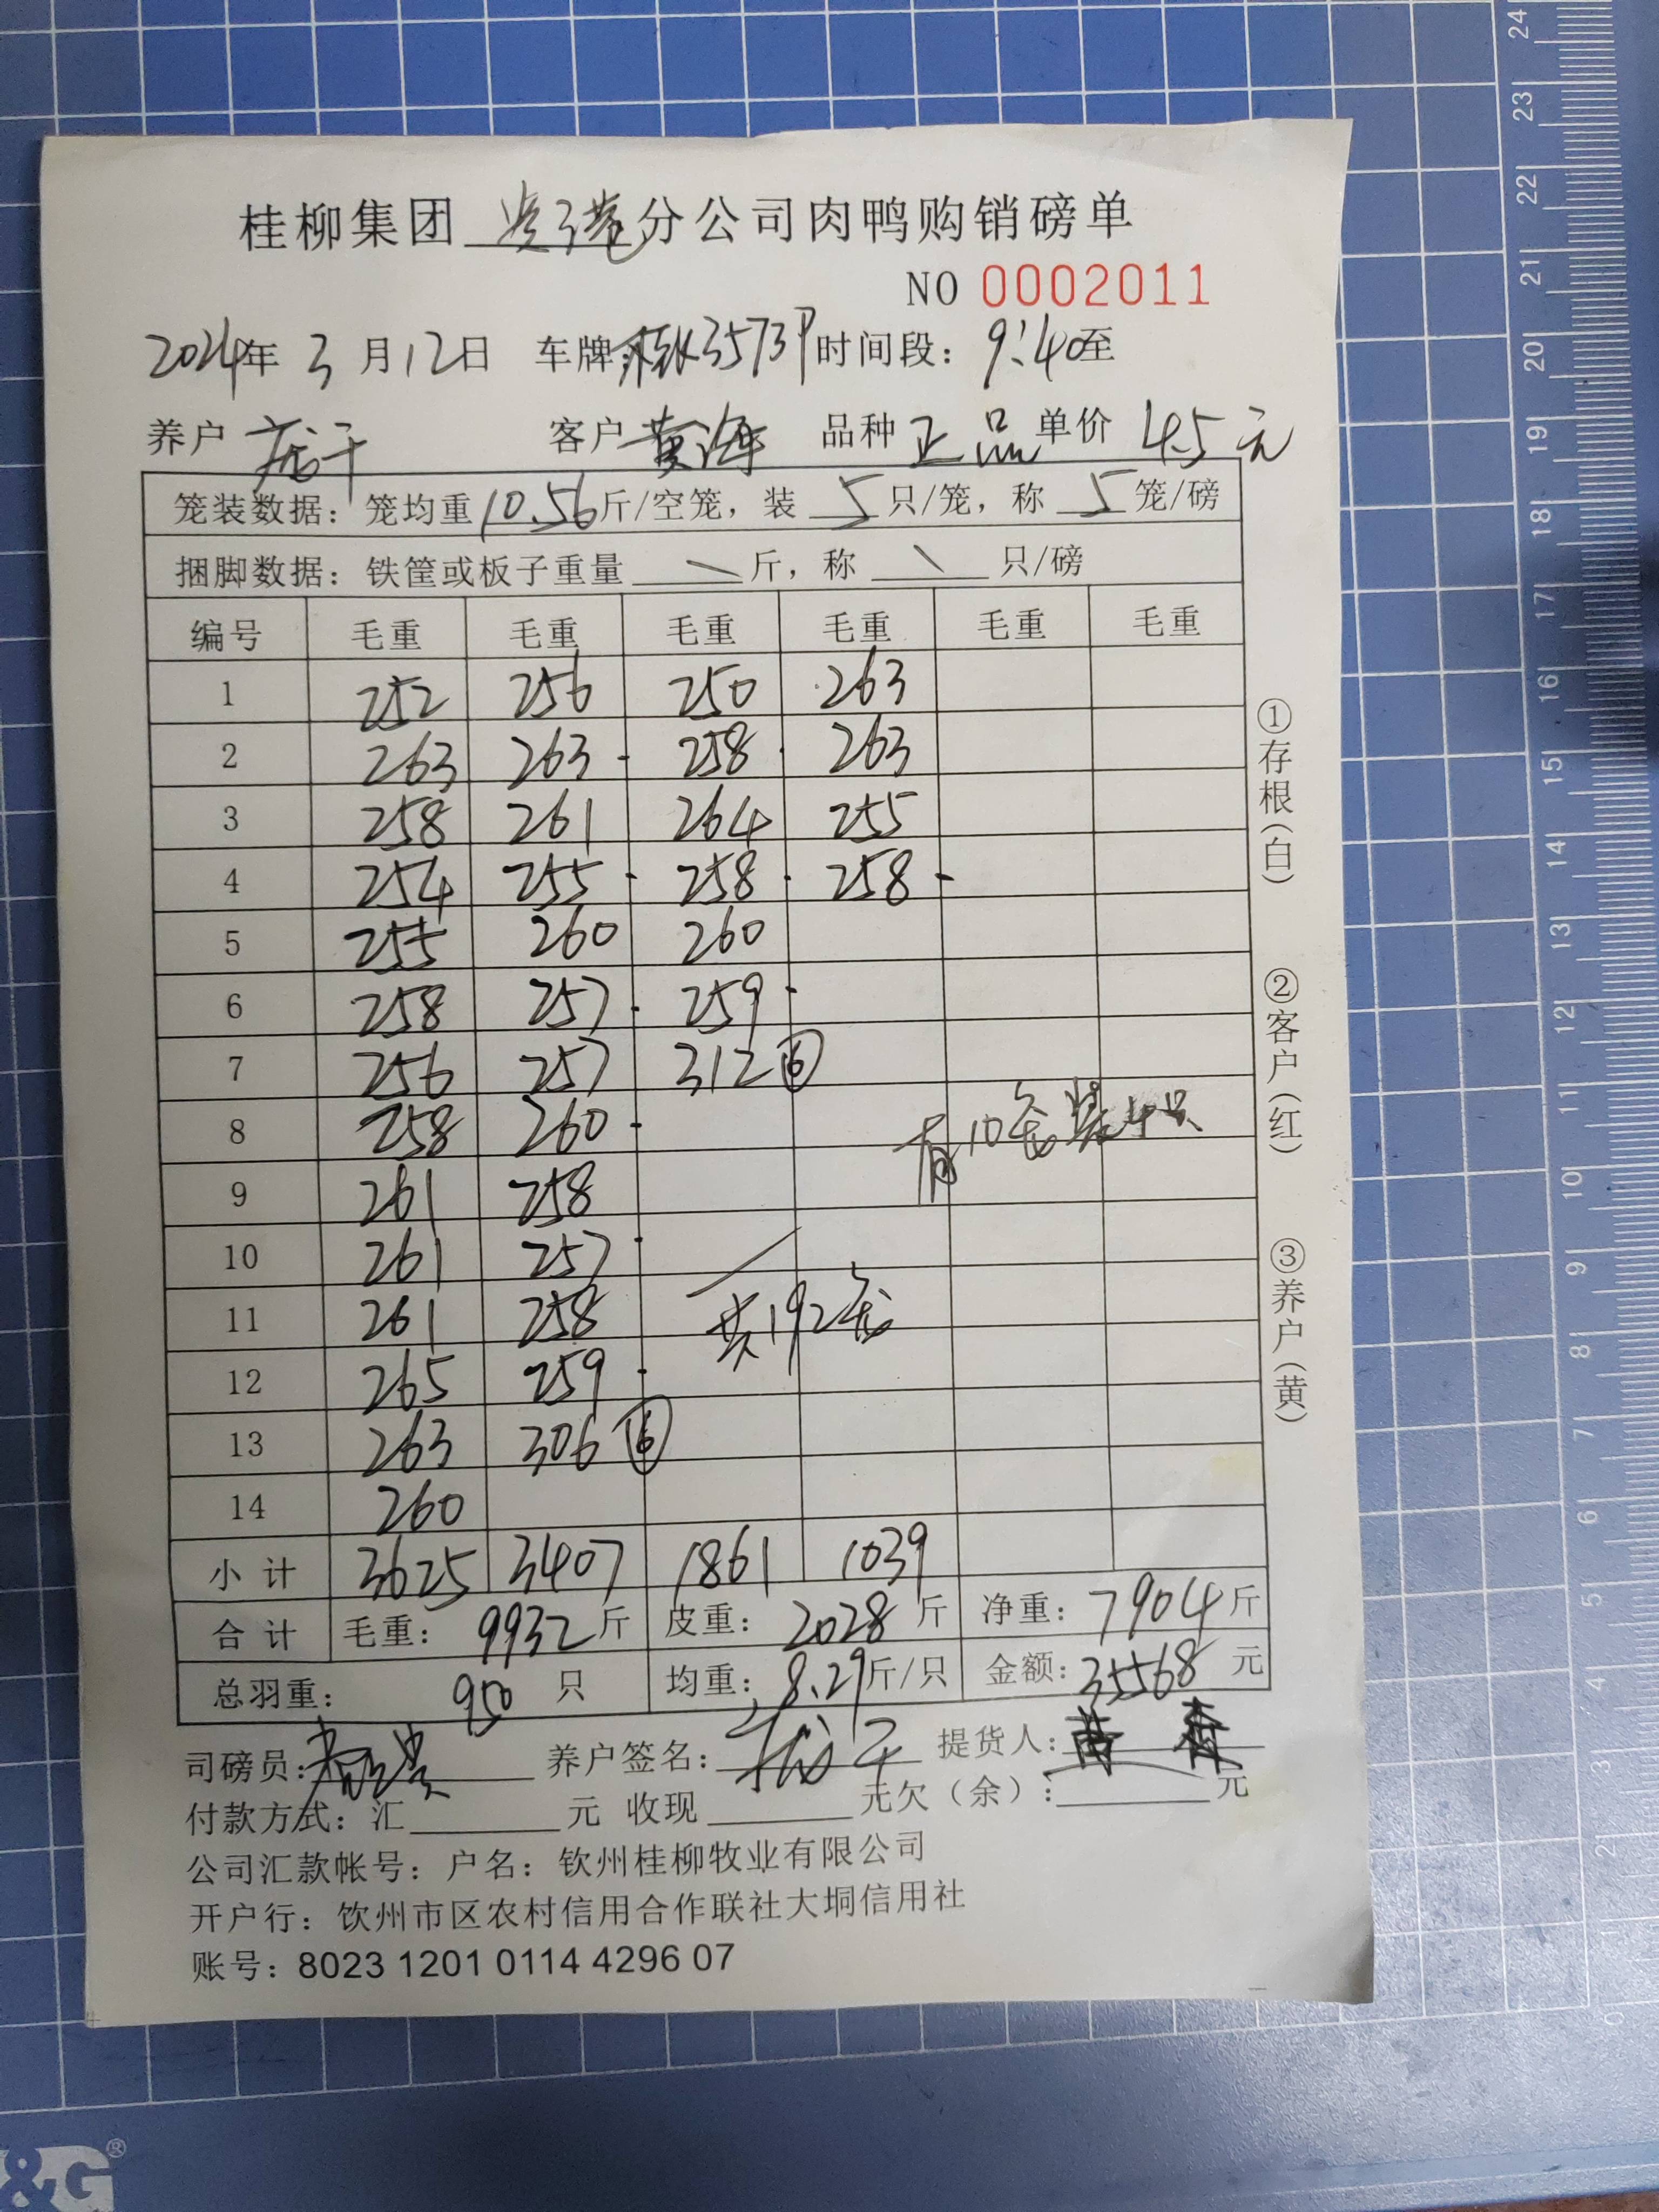 桂柳集团 贵港 分公司肉鸭购销磅单
NO 0002011
2024年 3 月 12 日 车牌 3573 时间段：9:40至
养户 庞于 客户 黄海 品种 正品 单价 4.5元
笼装数据：笼均重 10.56 斤/空笼，装 5 只/笼，称 5 笼/磅
捆脚数据：铁筐或板子重量 \ 斤，称 \ 只/磅
编号 毛重 毛重 毛重 毛重 毛重 毛重
1 252 256 250 263
2 263 263 258 263
3 258 261 264 255
4 254 255 258 258
5 255 260 260
6 258 257 259
7 256 257 312 ⑥
8 258 260
有10笼装4只
9 261 258
10 261 257
11 261 258
共192笼
12 265 259
13 263 306 ⑥
14 260
小计 3625 3407 1861 1039
合计 毛重：9932 斤 皮重：2028 斤 净重：7904 斤
总羽重：950 只 均重：8.29 斤/只 金额：35568 元
司磅员： 养户签名： 提货人：
付款方式：汇 元 收现 元欠（余）： 元
公司汇款帐号：户名：钦州桂柳牧业有限公司
开户行：钦州市区农村信用合作联社大垌信用社
账号：8023 1201 0114 4296 07
①存根（白） ②客户（红） ③养户（黄）
&G®
24
23
22
21
20
19
18
17
16
15
14
13
12
11
10
9
8
7
6
5
4
3
2
1
0